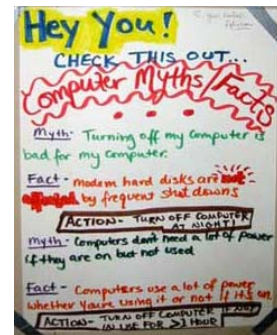 Hey You!
CHECK THIS OUT...
Computer Myths/Facts
Myth- Turning off my computer is
bad for my computer.
Fact- modern hard disks are not
affected by frequent shut downs
ACTION- TURN OFF COMPUTER
AT NIGHT!
Myth- Computers don't need a lot of power
if they are on but not used
Fact- Computers use a lot of power
whether you're using it or not if it's on.
ACTION- TURN OFF COMPUTER IF NOT
IN USE FOR
HOUR